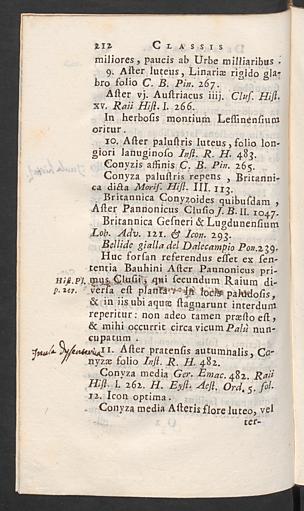 212 CLASSIS
miliores, paucis ab Urbe milliaribus.
9. Aster luteus, Linariæ rigido gla-
bro folio C. B. Pin. 267.
Aster vj. Austriacus iiij. Clus. Hist.
xv. Raii Hist. I. 266.
In herbosis montium Lessinensium
oritur.
10. Aster palustris luteus, folio lon-
giori lanuginoso Inst. R. H. 483.
Conyzis affinis C. B. Pin. 265.
Conyza palustris repens, Britanni-
ca dicta Moris. Hist. III. 113.
Britannica Conyzoides quibusdam,
Aster Pannonicus Clusio J. B. II. 1047.
Britannica Gesneri & Lugdunensium
Lob. Adv. 121. & Icon. 293.
Bellide gialla del Dalecampio Pon. 239.
Huc forsan referendus esset ex sen-
tentia Bauhini Aster Pannonicus pri-
Hist. Pl. mus Clusii, qui secundum Raium di-
p. 267. versa est planta. In locis paludosis,
& in iis ubi aquæ stagnarunt interdum
reperitur: non adeo tamen præsto est,
& mihi occurrit circa vicum Palù nun-
cupatum.
11. Aster pratensis autumnalis, Co-
nyzæ folio Inst. R. H. 482.
Conyza media Ger. Emac. 482. Raii
Hist. I. 262. H. Eyst. Aest. Ord. 5. fol.
12. Icon optima.
Conyza media Asteris flore luteo, vel
ter-